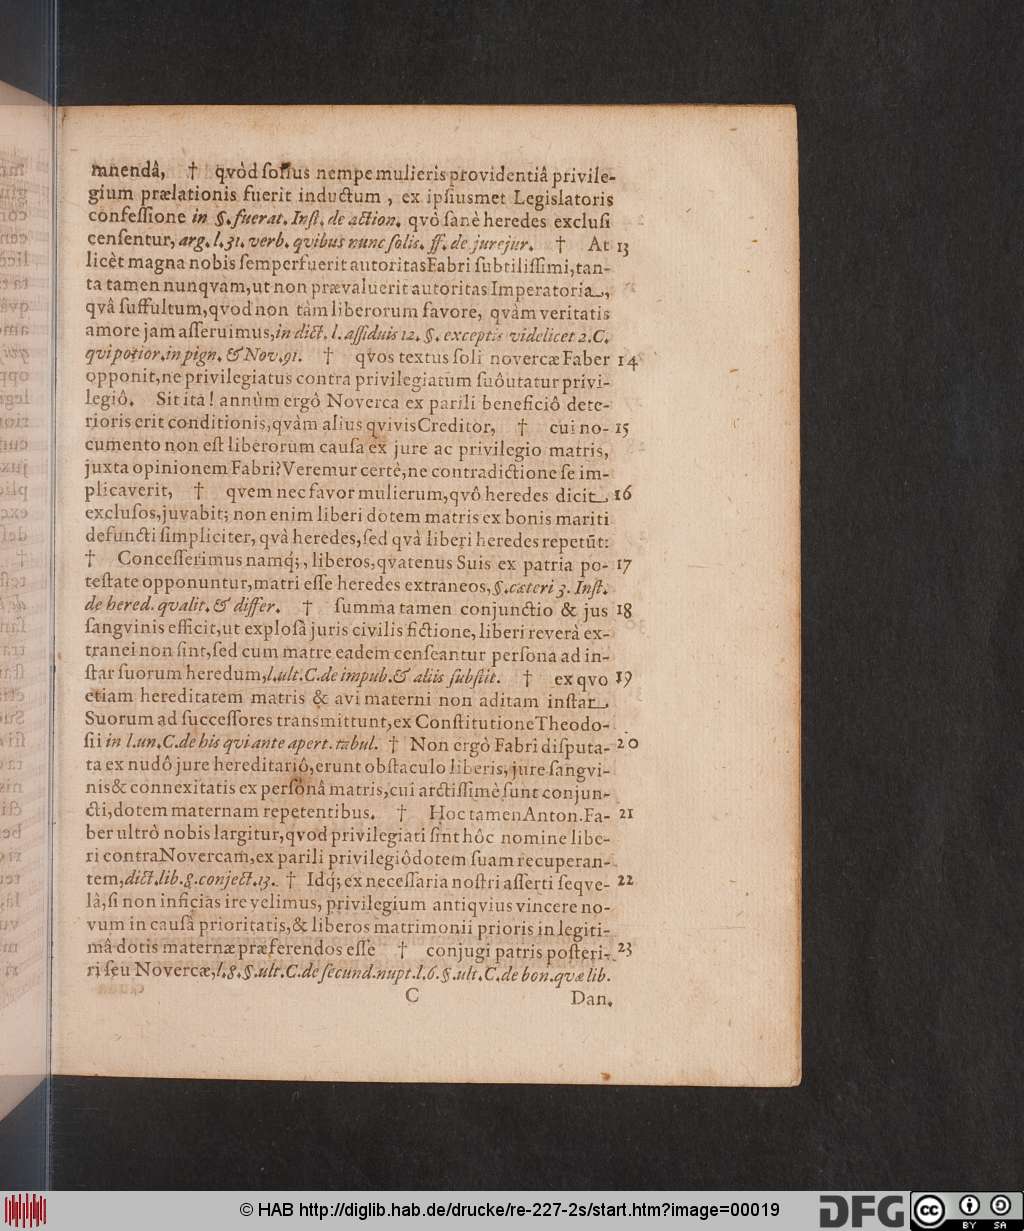 mnendâ, † qvòd solius nempe mulieris providentiâ privile-
gium prælationis fuerit inductum , ex ipsiusmet Legislatoris
confessione in §. fuerat. Inst. de action. qvò sanè heredes exclusi
censentur, arg. l. 31. verb. qvibus nunc solis. ff. de jurejur. † At 13
licèt magna nobis semperfuerit autoritas Fabri subtilissimi, tan-
ta tamen nunqvàm, ut non prævaluerit autoritas Imperatoria,
qvâ suffultum, qvod non tàm liberorum favore, qvàm veritatis
amore jam asseruimus, in dict. l. assiduis 12. §. exceptis videlicet 2. C.
qvi potior. in pign. & Nov. 91. † qvos textus soli novercæ Faber 14
opponit, ne privilegiatus contra privilegiatum suô utatur privi-
legiô. Sit ita! annùm ergô Noverca ex parili beneficiô dete-
rioris erit conditionis, qvàm alius qvivis Creditor, † cui no- 15
cumento non est liberorum causa ex jure ac privilegio matris,
juxta opinionem Fabri? Veremur certè, ne contradictione se im-
plicaverit, † qvem nec favor mulierum, qvô heredes dicit 16
exclusos, juvabit; non enim liberi dotem matris ex bonis mariti
defuncti simpliciter, qvà heredes, sed qvà liberi heredes repetũt:
† Concesserimus namq́;, liberos, qvatenus Suis ex patria po- 17
testate opponuntur, matri esse heredes extraneos, §. cæteri 3. Inst.
de hered. qvalit. & differ. † summa tamen conjunctio & jus 18
sangvinis efficit, ut explosâ juris civilis fictione, liberi reverà ex-
tranei non sint, sed cum matre eadem censeantur persona ad in-
star suorum heredum, l. ult. C. de impub. & aliis substit. † ex qvo 19
etiam hereditatem matris & avi materni non aditam instar
Suorum ad successores transmittunt, ex Constitutione Theodo-
sii in l. un. C. de his qvi ante apert. tabul. † Non ergò Fabri disputa- 20
ta ex nudô jure hereditariô, erunt obstaculo liberis, jure sangvi-
nis & connexitatis ex personâ matris, cui arctissimè sunt conjun-
cti, dotem maternam repetentibus. † Hoc tamen Anton. Fa- 21
ber ultrò nobis largitur, qvod privilegiati sint hôc nomine libe-
ri contra Novercam, ex parili privilegiô dotem suam recuperan-
tem, dict. lib. 8. conject. 13. † Idq́; ex necessaria nostri asserti seqve- 22
là, si non inficias ire velimus, privilegium antiqvius vincere no-
vum in causâ prioritatis, & liberos matrimonii prioris in legiti-
mâ dotis maternæ præferendos esse † conjugi patris posteri- 23
ri seu Novercæ, l. 8. §. ult. C. de secund. nupt. l. 6. §. ult. C. de bon. qvæ lib.
C Dan.
© HAB http://diglib.hab.de/drucke/re-227-2s/start.htm?image=00019
DFG cc BY SA